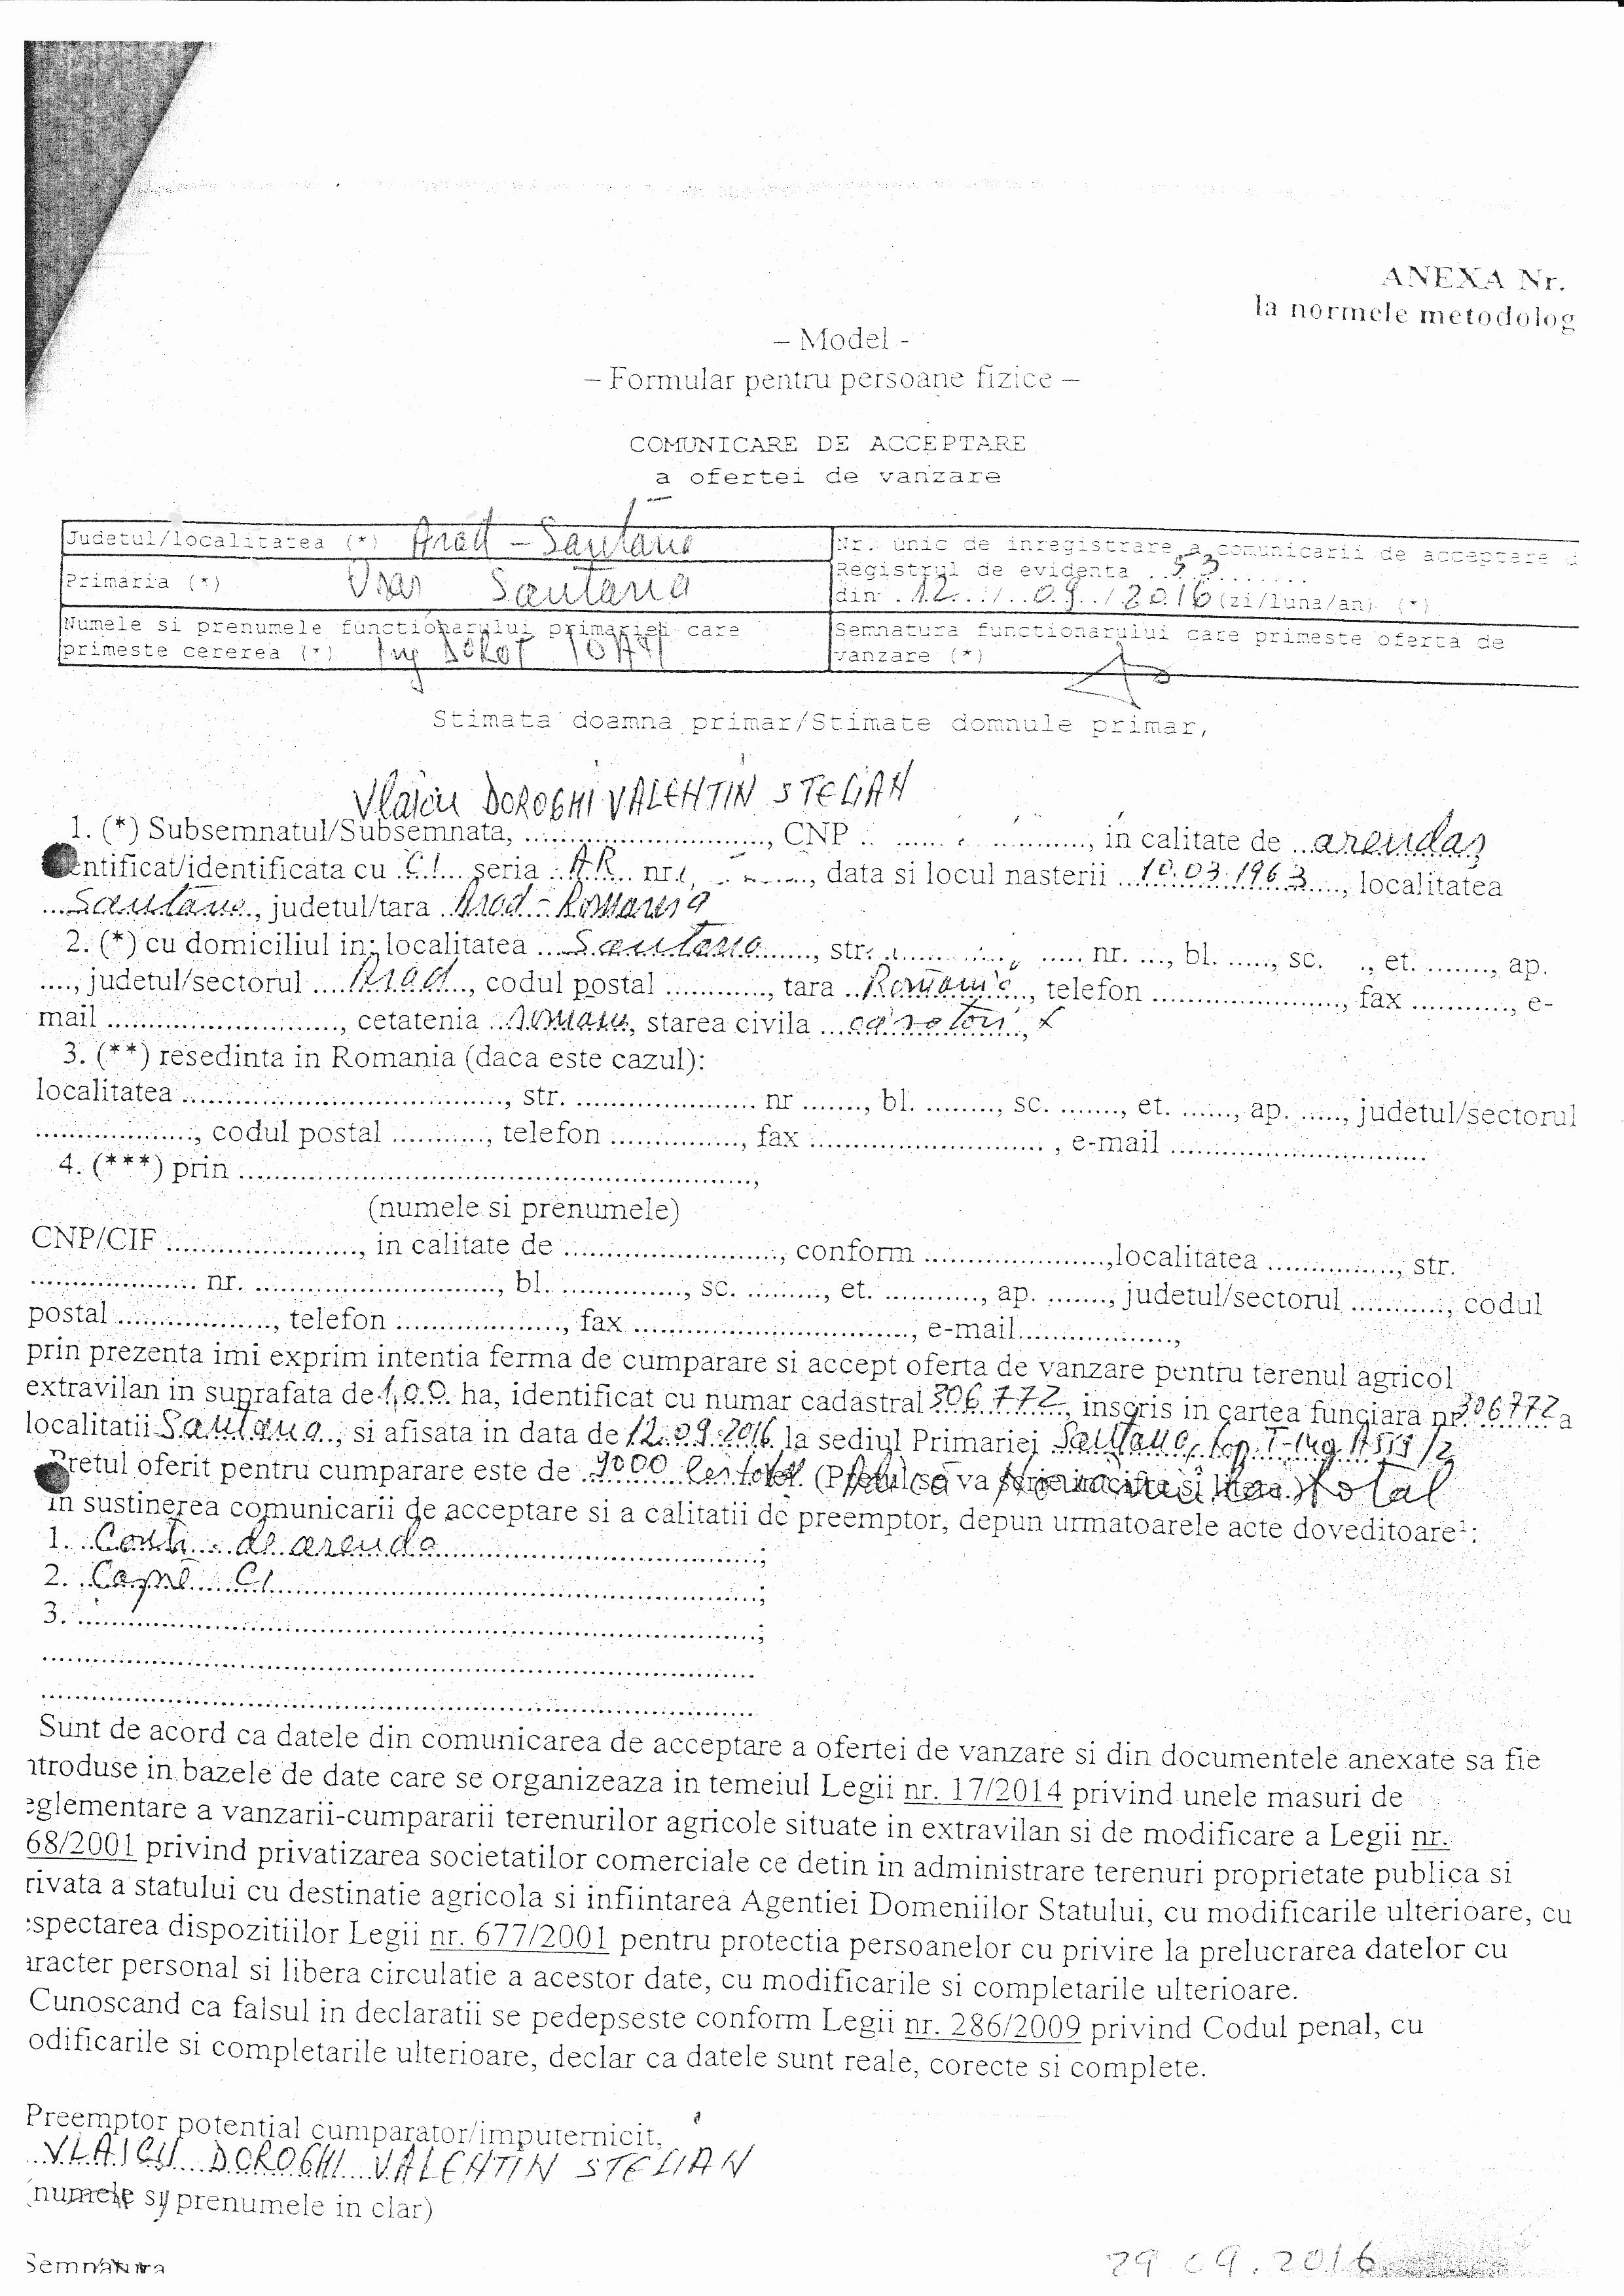 ANEXA Nr.
la normele metodolog
– Model -
– Formular pentru persoane fizice –
COMUNICARE DE ACCEPTARE
a ofertei de vanzare
Judetul/localitatea (*) Arad - Santana
Nr. unic de inregistrare a comunicarii de acceptare d
Registrul de evidenta ..53.......
Primaria (*) Oras Santana
din ..12.../..09../2016 (zi/luna/an) (*)
Numele si prenumele functionarului primariei care
primeste cererea (*) Ing
Semnatura functionarului care primeste oferta de
vanzare (*)
Stimata doamna primar/Stimate domnule primar,
Vlaicu DOROGHI VALENTIN STELIAN
1. (*) Subsemnatul/Subsemnata, ............................, CNP .. ...... . ............., in calitate de ..arendas
entificat/identificata cu .C.I... seria ..AR... nr., data si locul nasterii ...10.03.1963...., localitatea
...Santana.., judetul/tara ..Arad - Romania
2. (*) cu domiciliul in: localitatea ...Santana......., str. ............. nr. ..., bl. ....., sc. ., et. ......., ap.
...., judetul/sectorul ....Arad..., codul postal ............, tara ..Romania..., telefon ......................, fax ..........., e-
mail ..........................., cetatenia ..romana, starea civila ...casatorit
3. (**) resedinta in Romania (daca este cazul):
localitatea ....................................., str. ..................... nr ......., bl. ........, sc. ......., et. ......, ap. ....., judetul/sectorul
.................., codul postal ..........., telefon ..............., fax ........................... , e-mail .............................
4. (***) prin ............................................................,
(numele si prenumele)
CNP/CIF ......................, in calitate de ........................., conform .....................,localitatea ..............., str.
................... nr. ............................, bl. .............., sc. ........., et. ..........., ap. ......., judetul/sectorul ..........., codul
postal .................., telefon ..................., fax ................................, e-mail..................,
prin prezenta imi exprim intentia ferma de cumparare si accept oferta de vanzare pentru terenul agricol
extravilan in suprafata de 1,00 ha, identificat cu numar cadastral 306772, inscris in cartea funciara nr. 306772 a
localitatii Santana, si afisata in data de 12.09.2016 la sediul Primariei Santana, top.
Pretul oferit pentru cumparare este de ..9000 lei total. (Pretul se va scrie in cifre si litere.) total
in sustinerea comunicarii de acceptare si a calitatii de preemptor, depun urmatoarele acte doveditoare¹:
1. .Contr. de arenda...............................;
2. .Copie CI.............................................;
3. ..........................................................;
..............................................................
..............................................................
Sunt de acord ca datele din comunicarea de acceptare a ofertei de vanzare si din documentele anexate sa fie
ntroduse in bazele de date care se organizeaza in temeiul Legii nr. 17/2014 privind unele masuri de
eglementare a vanzarii-cumpararii terenurilor agricole situate in extravilan si de modificare a Legii nr.
68/2001 privind privatizarea societatilor comerciale ce detin in administrare terenuri proprietate publica si
rivata a statului cu destinatie agricola si infiintarea Agentiei Domeniilor Statului, cu modificarile ulterioare, cu
espectarea dispozitiilor Legii nr. 677/2001 pentru protectia persoanelor cu privire la prelucrarea datelor cu
aracter personal si libera circulatie a acestor date, cu modificarile si completarile ulterioare.
Cunoscand ca falsul in declaratii se pedepseste conform Legii nr. 286/2009 privind Codul penal, cu
odificarile si completarile ulterioare, declar ca datele sunt reale, corecte si complete.
Preemptor potential cumparator/imputernicit,
VLAICU DOROGHI VALENTIN STELIAN
(numele si prenumele in clar)
Semnatura
29.09.2016